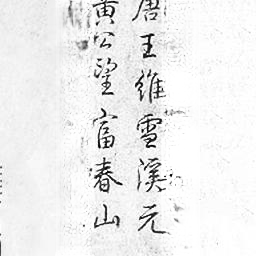 唐王維雪溪元
黄公望富春山